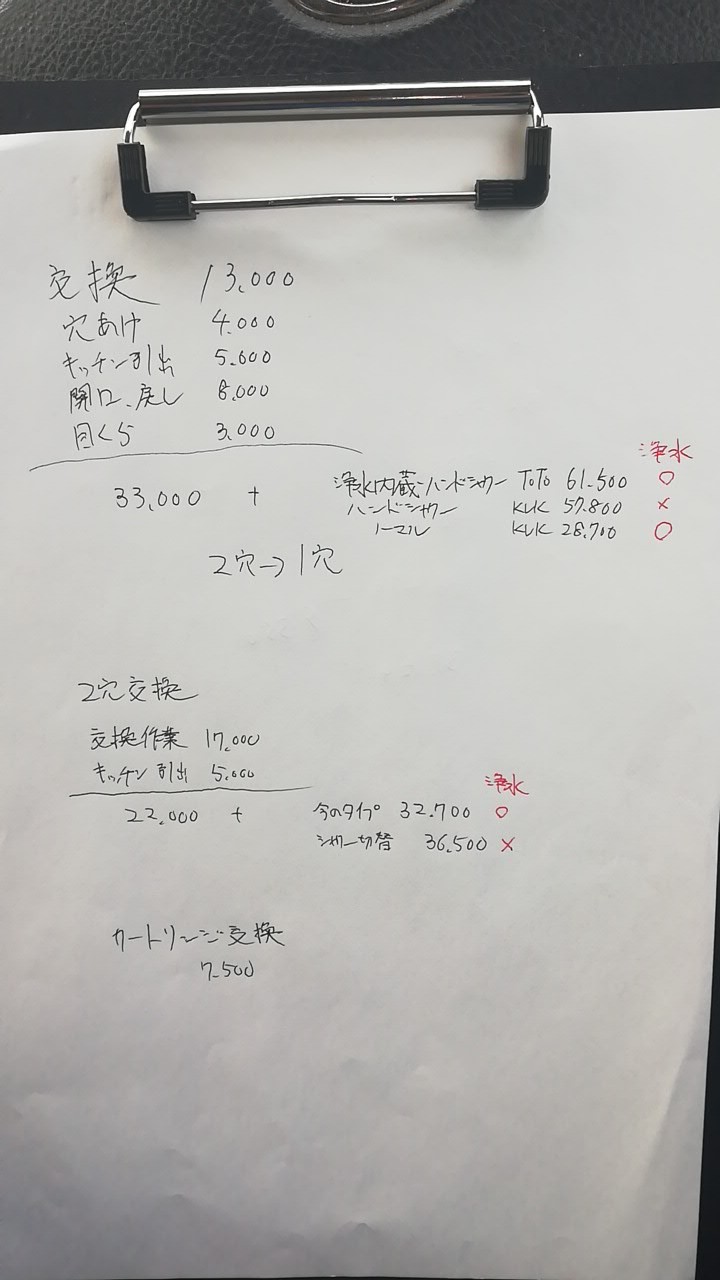 交換 13,000
穴あけ 4.000
キッチン引出 5.000
開口、戻し 8.000
目くら 3.000
浄水
33.000 + 浄水内蔵ハンドシャワー TOTO 61.500 ○
ハンドシャワー KVK 57.800 ×
ノーマル KVK 28.700 ○
2穴→1穴
2穴交換
交換作業 17,000
キッチン引出 5.000
浄水
22.000 + 今のタイプ 32.700 ○
シャワー切替 36.500 ×
カートリッジ交換
7.500